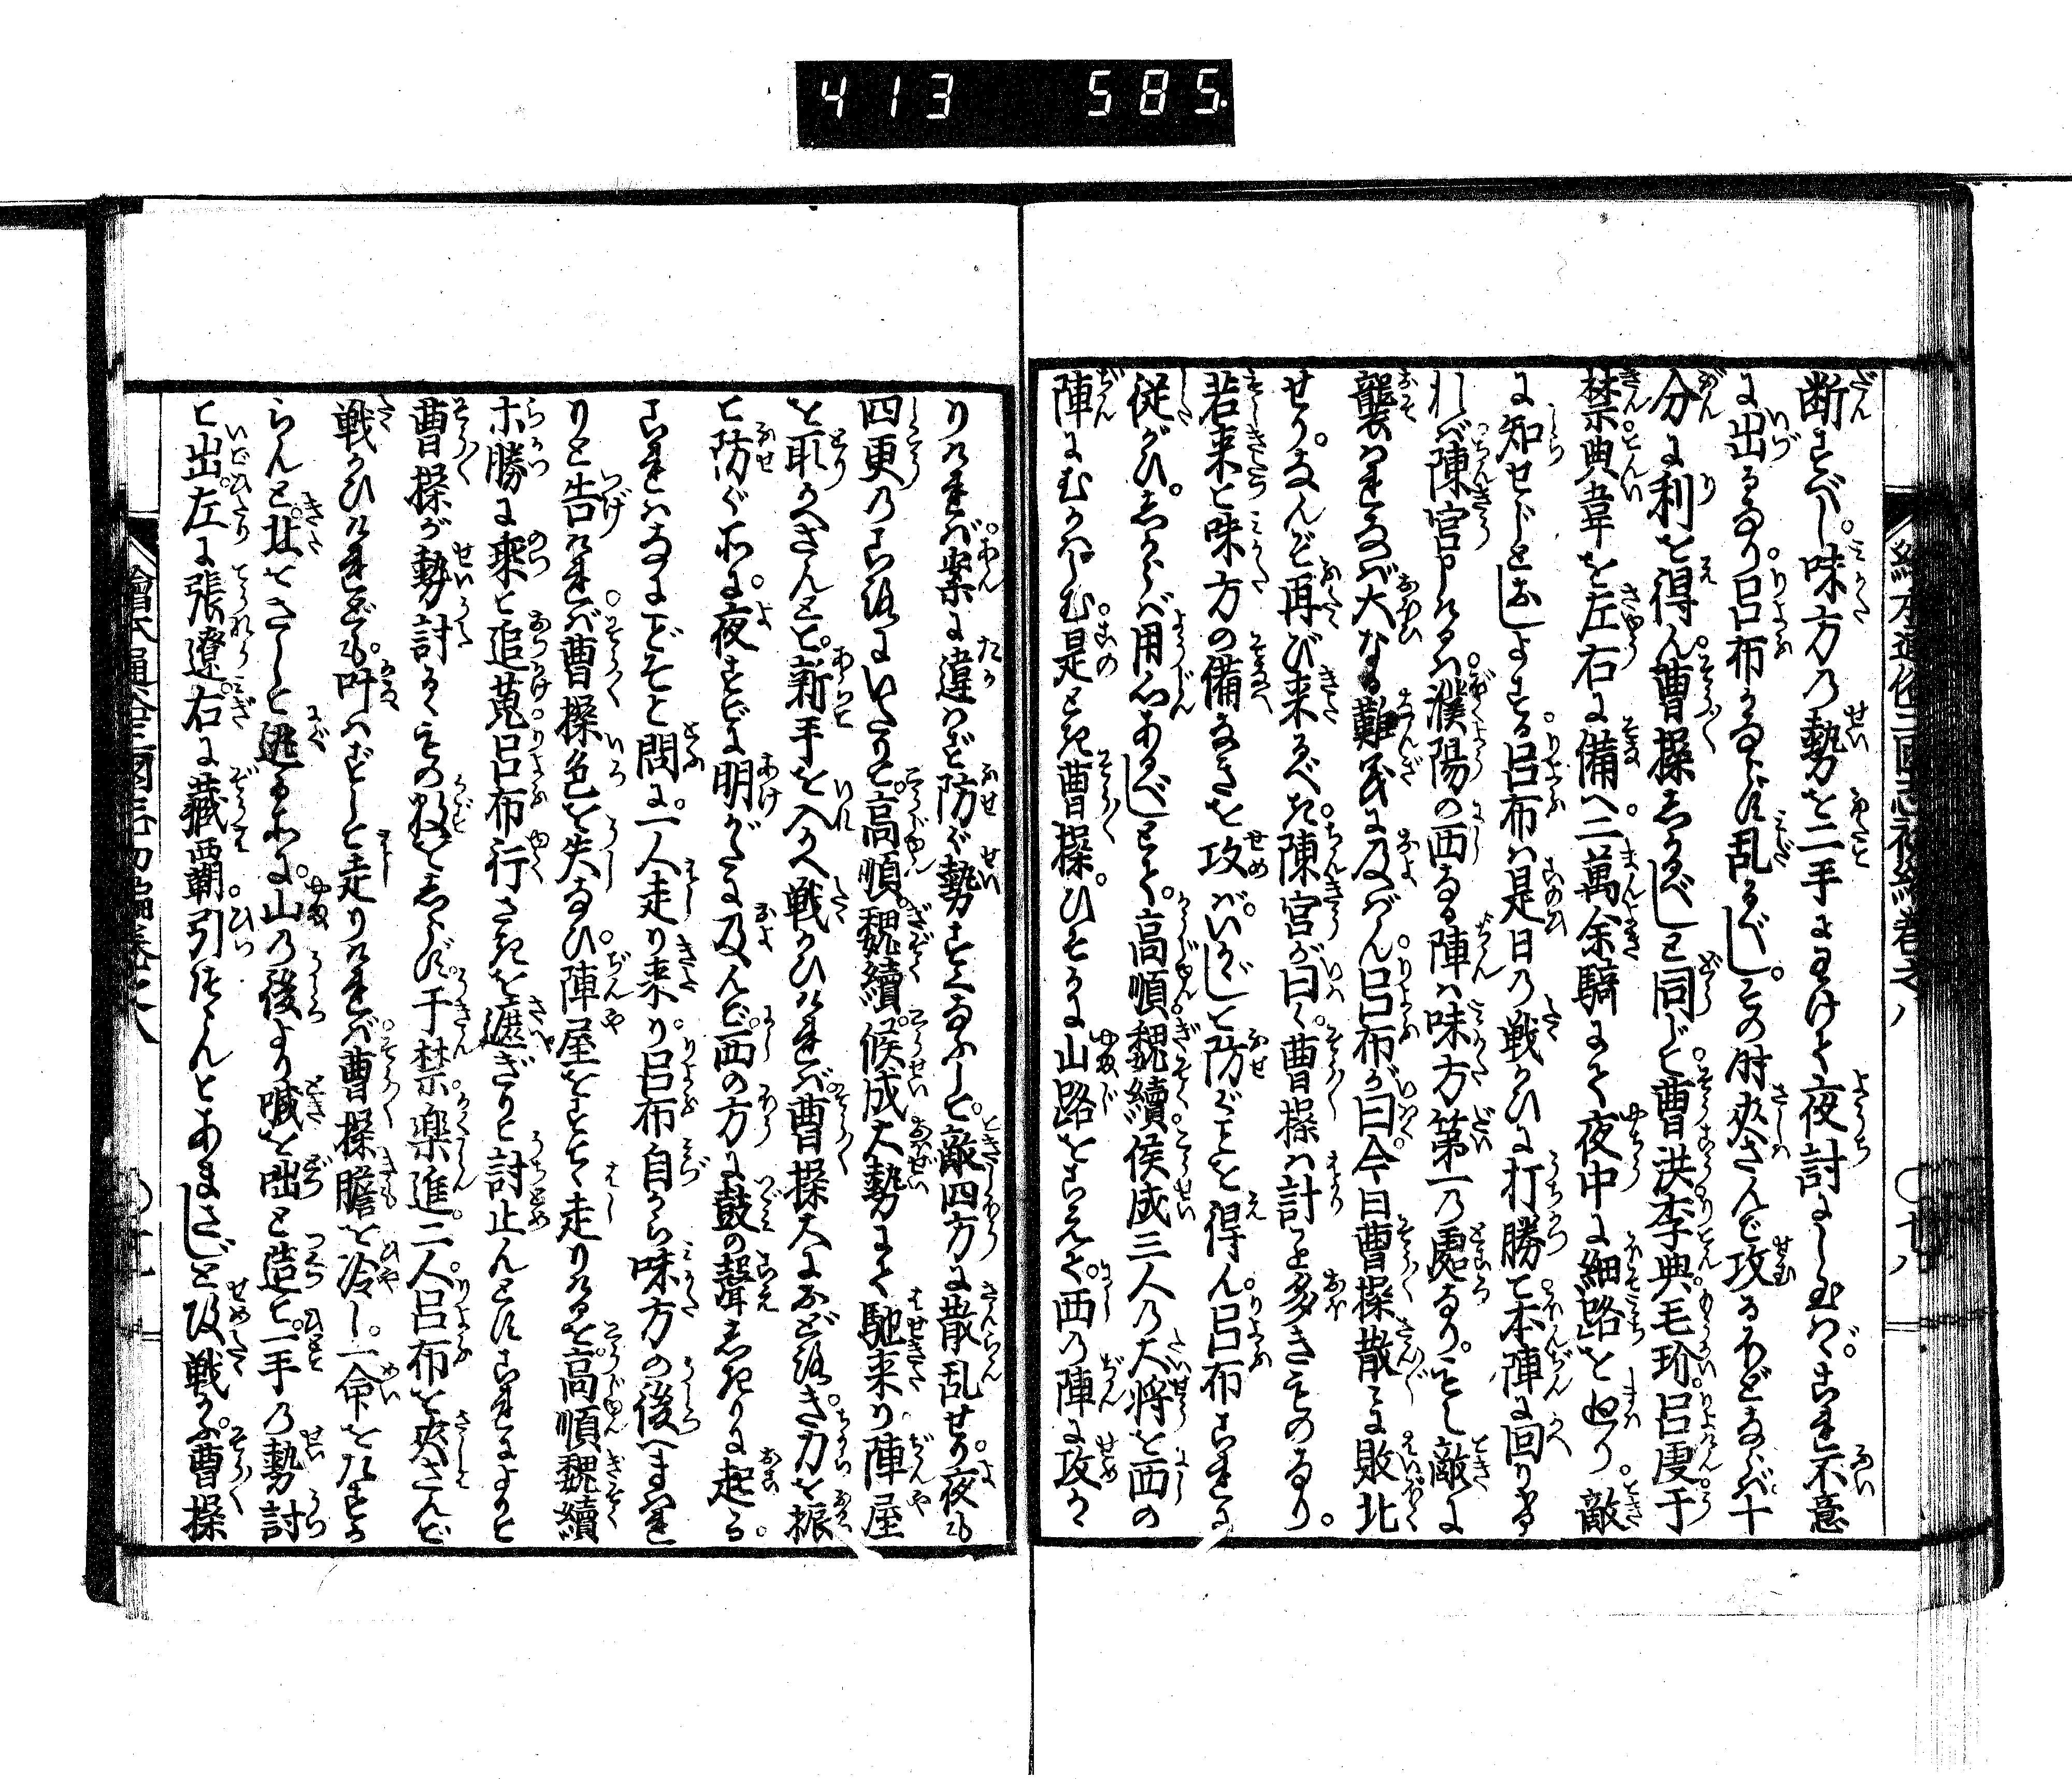 413 585.
断すべし。味方乃勢を二手にわけて夜討にしむれバ。これ不意
に出るなり呂布かならず乱るべし。その时夾さんで攻るほどならバ十
分に利を得ん。曹操志かるべしと同じて。曹洪李典毛玠呂虔于
禁典韋を左右に備へ。二萬余騎にて夜中に細路をめぐり。敵
に知せじとおしよする。呂布ハ是日乃戦ひに打勝て本陣に回りけ
れバ陳宮申けるハ。濮陽の西なる陣ハ味方第一乃處なり。もし敵に
襲はれなバ大なる難義に及バん。呂布が曰今日曹操散〻に敗北
せり。なんぞ再び来るべき。陳宮が曰く曹操ハ計こと多きものなり。
若来て味方の備なきを攻バ。いかゞして防ぐことを得ん。呂布これに
従がひ。志からバ用心あるべしとて。高順魏續侯成三人乃大将を西の
陣にむかハしむ。是とき曹操。ひそかに山路をこえて。西乃陣に攻か
りけれバ。案に違はず防ぐ勢すくなふして。敵四方に散乱せり。夜も
四更乃ころにいたりて。高順。魏續。候成大勢にて馳来り陣屋
を取かへさんとて。新手を入かへ戦かひけれバ。曹操大におどろき。力を振
て防ぐ所に。夜すでに明がたに及んで。西の方に鼓の聲志きりに起る。
これハなにごとぞと問に。一人走り来り。呂布自から味方の後へまはれ
りと告けれバ。曹操色を失なひ。陣屋をすてて走りけるを。高順魏續
ホ勝に乗て追蒐。呂布行さきを遮ぎりて討止んとす。これによりて
曹操が勢討るゝもの数を志らず。于禁。楽進。二人呂布を夾さんで
戦かひけれども。叶ハずして走りけれバ。曹操膽を冷し。一命をたすか
らんと。北をさして逃る所に。山乃後より喊を咄と造て。一手乃勢討
て出。左に張遼。右に臧覇引つゝんとあまさじと攻戦かふ。曹操